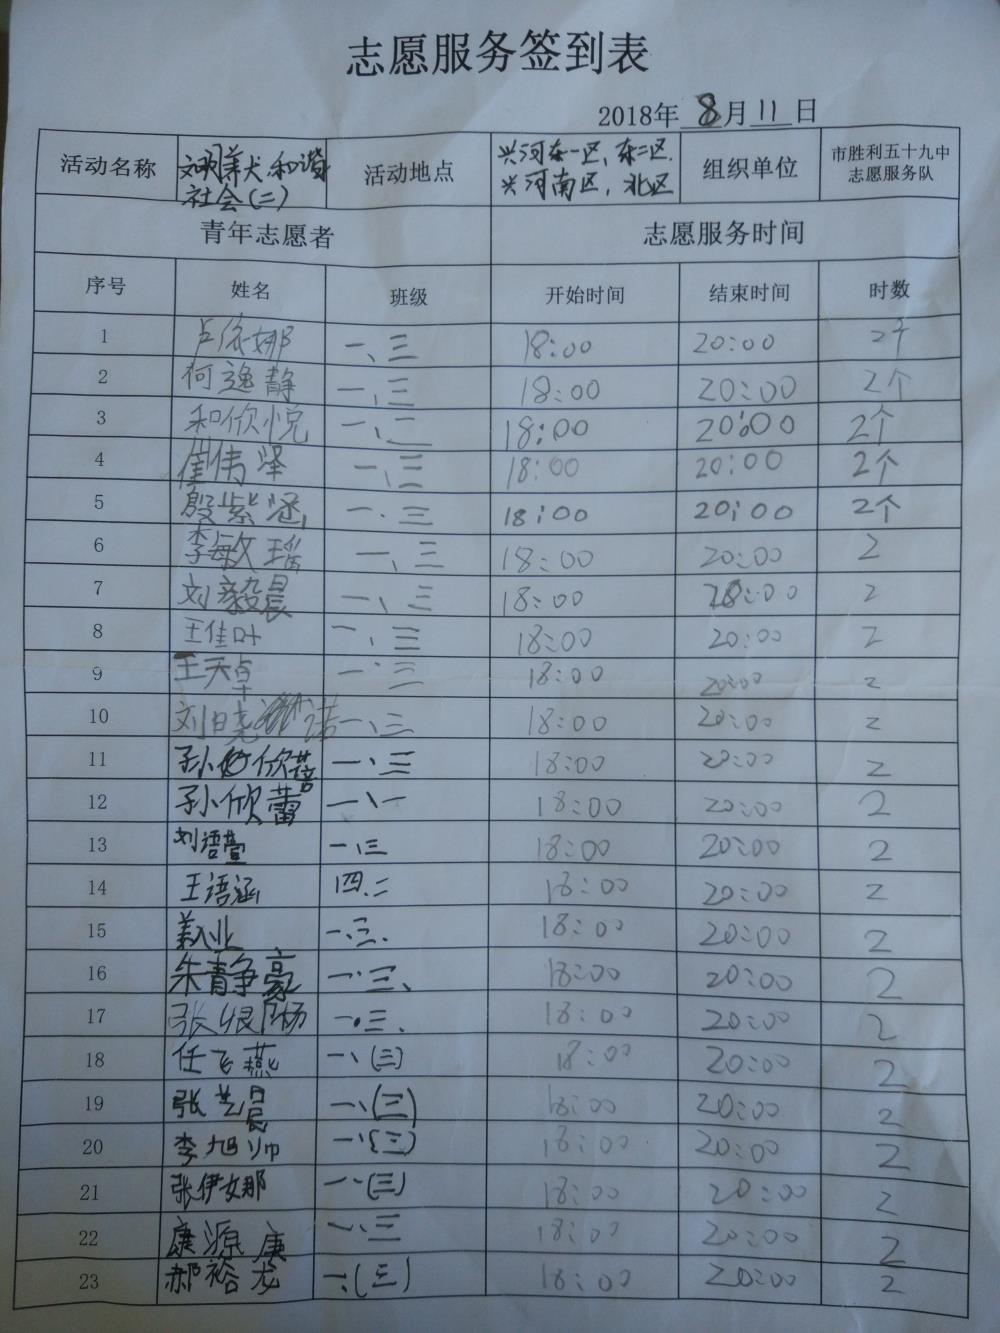 志愿服务签到表
2018年 8 月 11 日
活动名称 文明养犬.和谐社会(二) 活动地点 兴河东一区,东二区.兴河南区,北区 组织单位 市胜利五十九中志愿服务队
青年志愿者 志愿服务时间
序号 姓名 班级 开始时间 结束时间 时数
1 卢依娜 一、三 18:00 20:00 2个
2 何逸静 一、三 18:00 20:00 2个
3 和欣悦 一、二 18:00 20:00 2个
4 崔伟泽 一、三 18:00 20:00 2个
5 殷紫涵 一、三 18:00 20:00 2个
6 李敏瑶 一、三 18:00 20:00 2
7 刘毅晨 一、三 18:00 20:00 2
8 王佳叶 一、三 18:00 20:00 2
9 王天卓 一、三 18:00 20:00 2
10 刘日尧 一、三 18:00 20:00 2
11 孙欣蓓 一、三 18:00 20:00 2
12 孙欣蕾 一、一 18:00 20:00 2
13 刘语萱 一.三 18:00 20:00 2
14 王语涵 四.二 18:00 20:00 2
15 一.三. 18:00 20:00 2
16 朱青静豪 一.三、 18:00 20:00 2
17 张 一.三. 18:00 20:00 2
18 任飞燕 一、(三) 18:00 20:00 2
19 张艺晨 一、(三) 18:00 20:00 2
20 李旭帅 一、(三) 18:00 20:00 2
21 张伊娜 一、(三) 18:00 20:00 2
22 康源康 一、三 18:00 20:00 2
23 郝裕龙 一.(三) 18:00 20:00 2